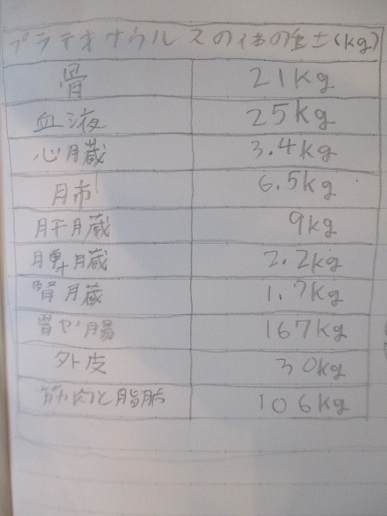 プラテオサウルスの体の重さ(kg)
骨 21kg
血液 25kg
心臓 3.4kg
肺 6.5kg
肝臓 9kg
脾臓 2.2kg
腎臓 1.7kg
胃や腸 167kg
外皮 30kg
筋肉と脂肪 106kg